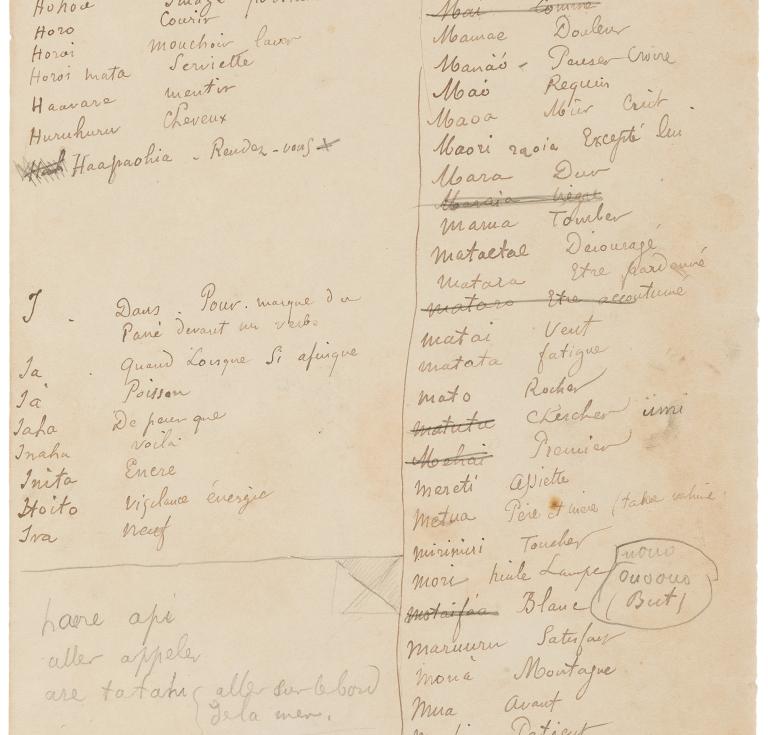 Horo Courir
Horoi mouchoir laver
Horoi mata Serviette
Haavare mentir
Huruhuru Cheveux
Haapaohia - Rendez-vous
I - Dans. Pour. marque du
Passé devant un verbe
Ia . Quand Lorsque Si afinque
Ia Poisson
Iaha De peur que
Inaha voilà
Inita Encre
Itoito vigilance énergie
Iva neuf
haere api
aller appeler
are tatahi ( aller sur le bord
de la mer.
Mai Comme
Mamae Douleur
Manaó - Penser Croire
Maó Requin
Maoa Mûr Cuit
Maori raoia Excepté lui
Mara Dur
Maraia
Marua Tomber
mataetae Découragé
matara Etre pardonné
mataro Etre accoutumé
matai Vent
matata fatigue
mato Rocher
matutu chercher iimi
Mehai Premier
mereti Assiette
Metua Père et mère (tane vahine
mirimiri Toucher
mori huile Lampe
ouoouo
(But)
Blanc
maruuru Satisfait
mouà Montagne
Mua Avant